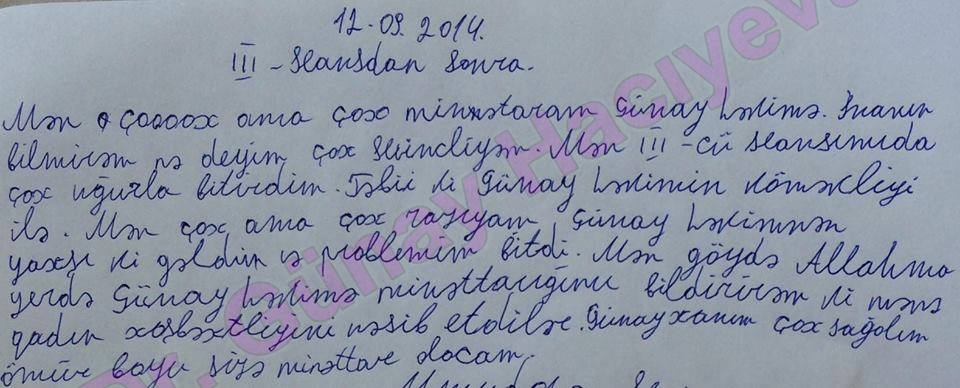 12.09.2014.
III - seansdan sonra.
Mən çooox ama çox minnətaram Günay həkimə. İnanın
bilmirəm nə deyim, çox sevincliyəm. Mən III-cü seansımıda
çox uğurla bitirdim. Təbii ki Günay həkimin köməkliyi
ilə. Mən çox ama çox razıyam Günay həkimnən
yaxşı ki gəldim və problemim bitdi. Mən göydə Allahıma
yerdə Günay həkimə minəttaığımı bildirirəm ki mənə
qadın xoşbəxtliyini nəsib etdilər. Günay xanım çox sağolun
ömür boyu sizə minəttar olacam.
Dr. Günay Hacıyeva